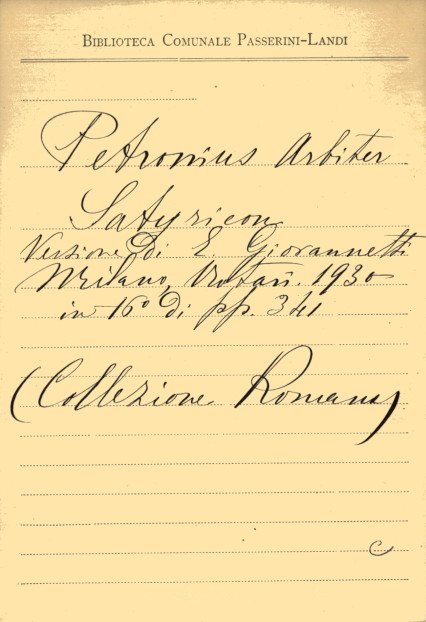 BIBLIOTECA COMUNALE PASSERINI-LANDI
Petronius Arbiter
Satyricon
Versione di E. Giovannetti
Milano, 1930
in 16º di pp. 341
(Collezione Romana)
C